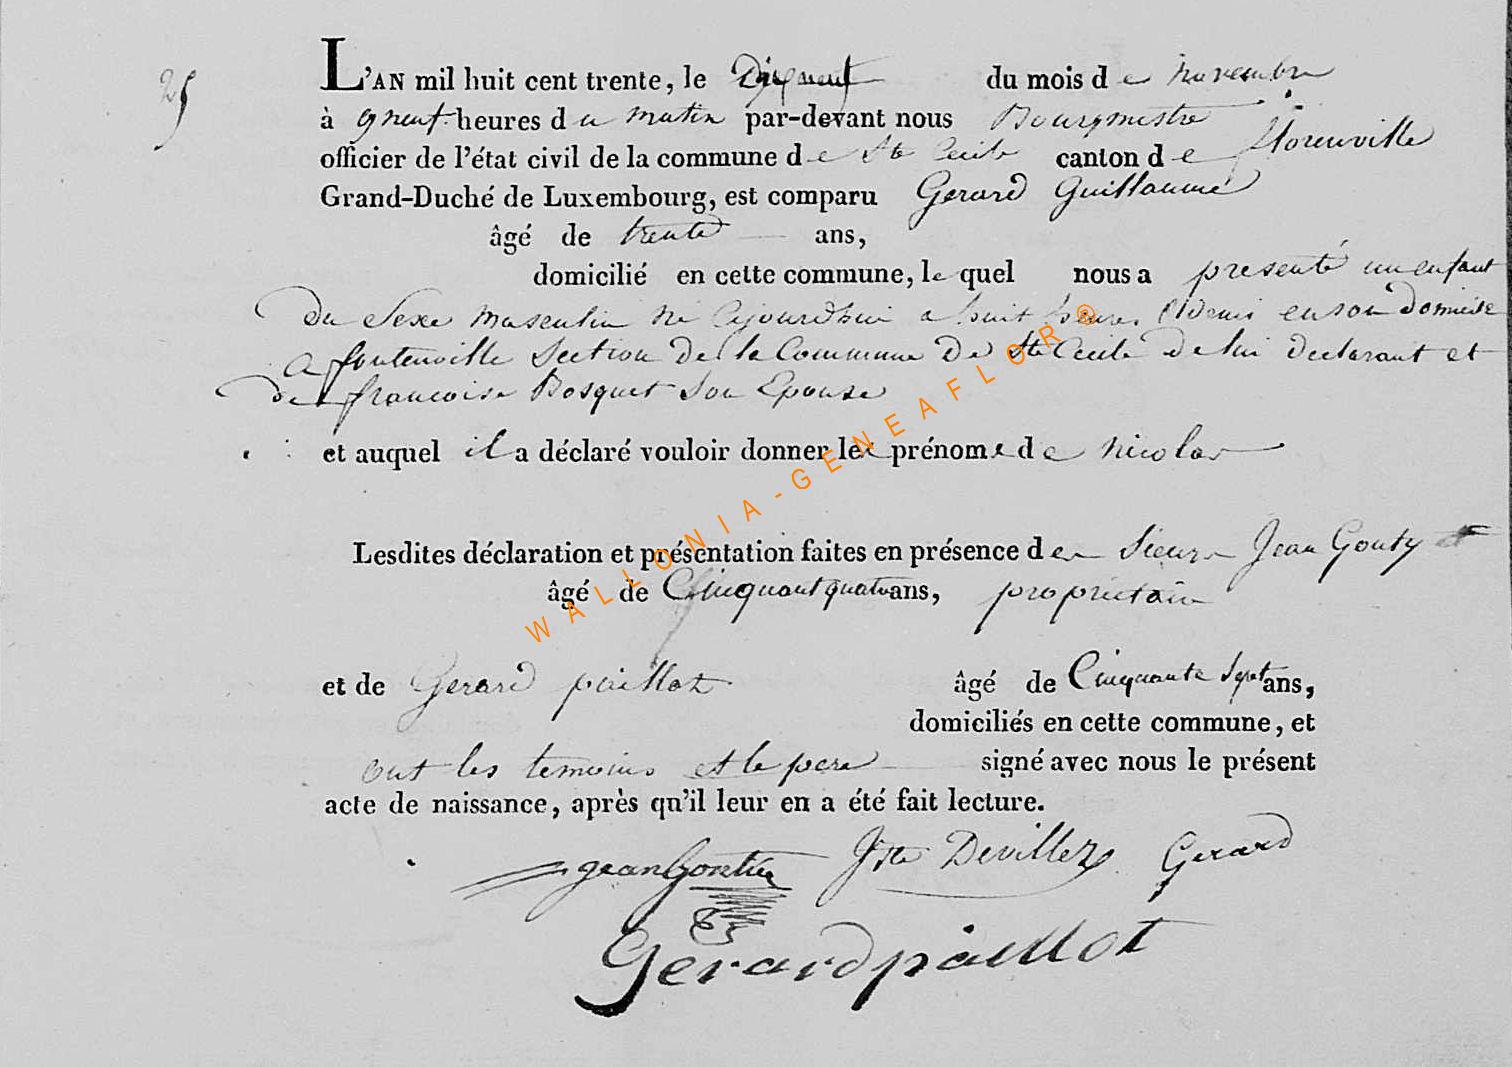 25
L'AN mil huit cent trente, le Dixneuf du mois de novembre
à neuf heures du matin par-devant nous Bourgmestre
officier de l'état civil de la commune de Ste Cecile canton de florenville
Grand-Duché de Luxembourg, est comparu Gerard Guillaume
âgé de trente ans,
domicilié en cette commune, le quel nous a presenté un enfant
du Sexe masculin né ajourdhui a huit heures et demi en son domicile
a fontenoille Section de la Commune de Ste Cecile de lui declarant et
de francoise Bosquet son Epouse
et auquel il a déclaré vouloir donner les prénoms de nicolas
Lesdites déclaration et présentation faites en présence des Sieurs Jean Gouty et
âgé de Cinquant quatre ans, proprietaire
et de Gerard paillot âgé de Cinquante Sept ans,
domiciliés en cette commune, et
ont les temoins et le pere signé avec nous le présent
acte de naissance, après qu'il leur en a été fait lecture.
jean Goutié Jte Devillez Gerard
Gerard paillot
WALLONIA-GENEAFLOR®